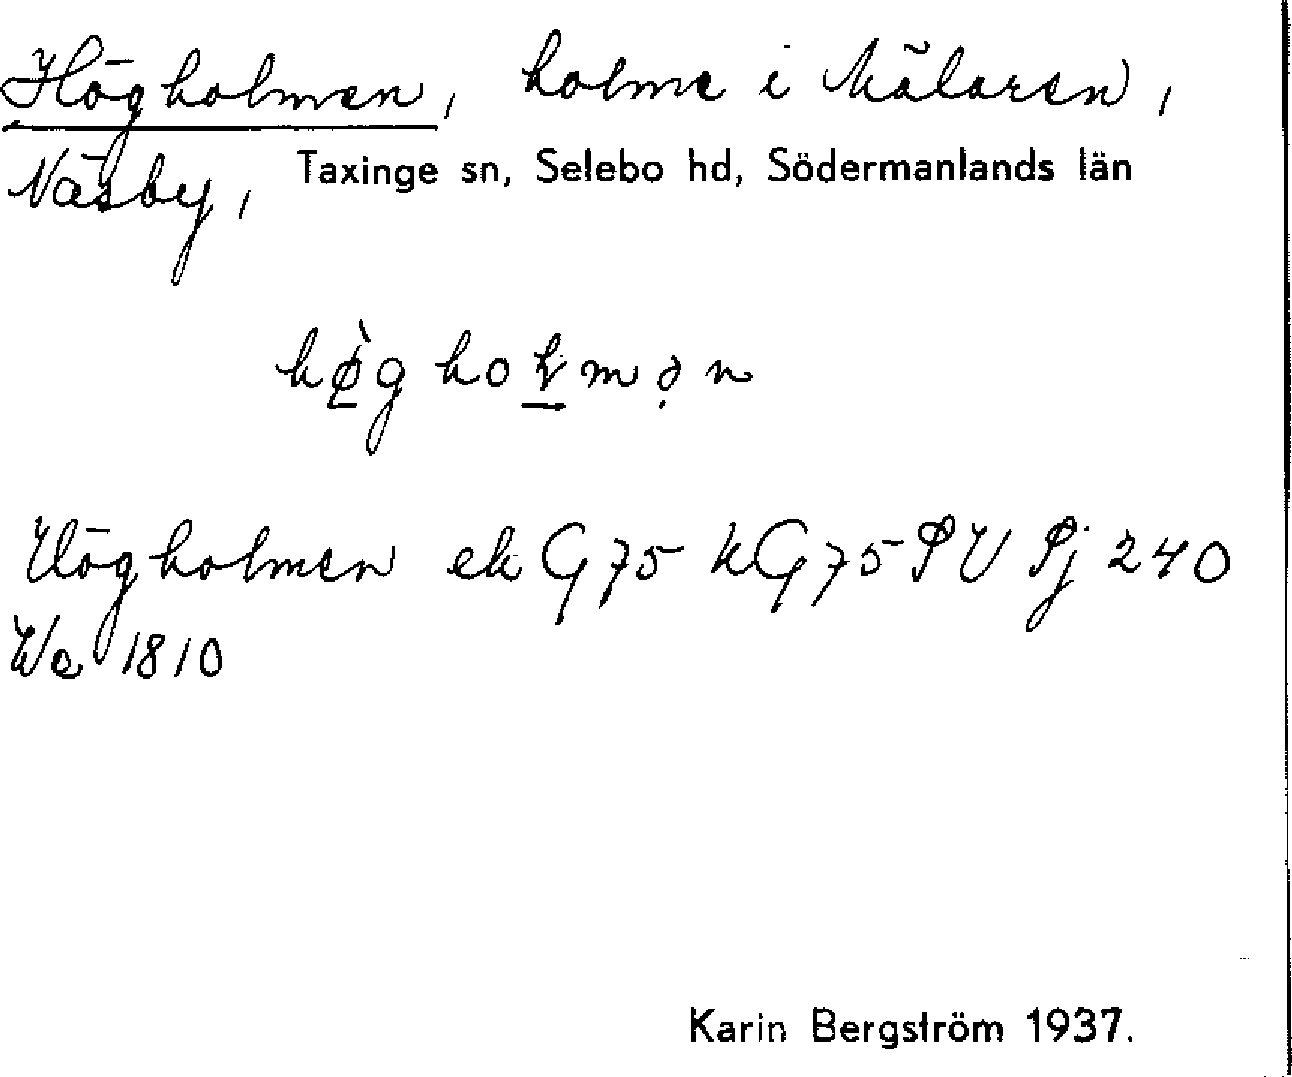 Högholmen, holme i Mälaren,
Näsby, Taxinge sn, Selebo hd, Södermanlands län
Högholmen ek G75 kG75 PU Pj 240
We 1810
Karin Bergström 1937.